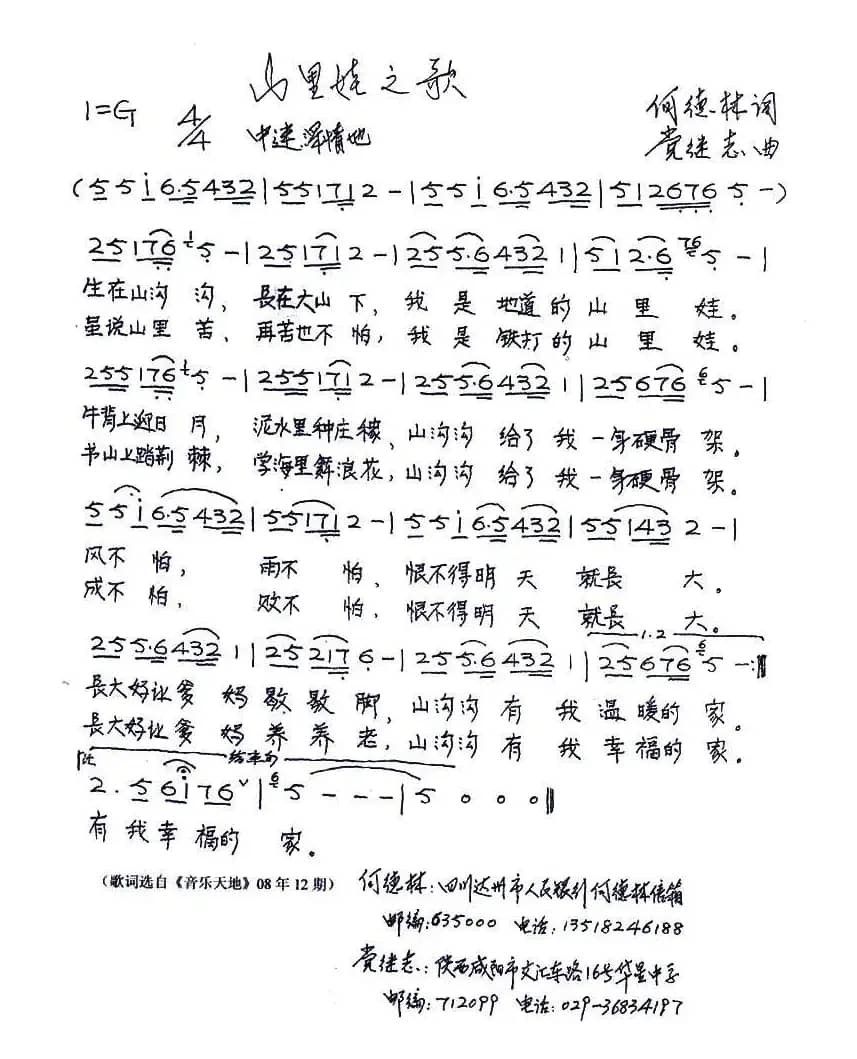 山里娃之歌
1=G 4/4 中速 深情地
何德林词
党继志曲
(5 5 i 6·5 4 3 2 | 5 5 1 7 1 2 - | 5 5 i 6·5 4 3 2 | 5 1 2 6 7 6 5 -)
2 5 1 7 6 1 5 - | 2 5 1 7 1 2 - | 2 5 5·6 4 3 2 1 | 5 1 2·6 7 6 5 - |
生在山沟 沟, 長在大山 下, 我 是 地道的 山 里 娃。
虽说山里 苦、再苦也不 怕, 我 是 铁打的 山 里 娃。
2 5 5 1 7 6 1 5 - | 2 5 5 1 7 1 2 - | 2 5 5·6 4 3 2 1 | 2 5 6 7 6 6 5 - |
牛背上迎日 月, 泥水里种庄稼、山沟沟 给了 我 一身硬骨 架。
书山上踏荆 棘, 学海里舞浪花, 山沟沟 给了 我 一身硬骨 架。
5 5 i 6·5 4 3 2 | 5 5 1 7 1 2 - | 5 5 i 6·5 4 3 2 | 5 5 1 4 3 2 - |
风不 怕, 雨不 怕、恨不得明 天 就長 大。
成不 怕、败不 怕、恨不得明 天 就長 大。
1.2
2 5 5·6 4 3 2 1 | 2 5 2 1 7 6 - | 2 5 5·6 4 3 2 1 | 2 5 6 7 6 6 5 - :‖
長大好让爹 妈 歇 歇 脚, 山沟沟 有 我 温 暖的 家。
長大好让爹 妈 养 养 老, 山沟沟 有 我 幸 福的 家。
结束句
2 · 5 6 i 7 6 ˅ | 6 5 - - - | 5 0 0 0 ‖
有 我 幸 福的 家。
(歌词选自《音乐天地》08年12期)
何德林:四川达州市人民银行何德林信箱
邮编:635000 电话:13518246188
党继志:陕西咸阳市文汇东路16号华星中学
邮编:712099 电话:029-36834197